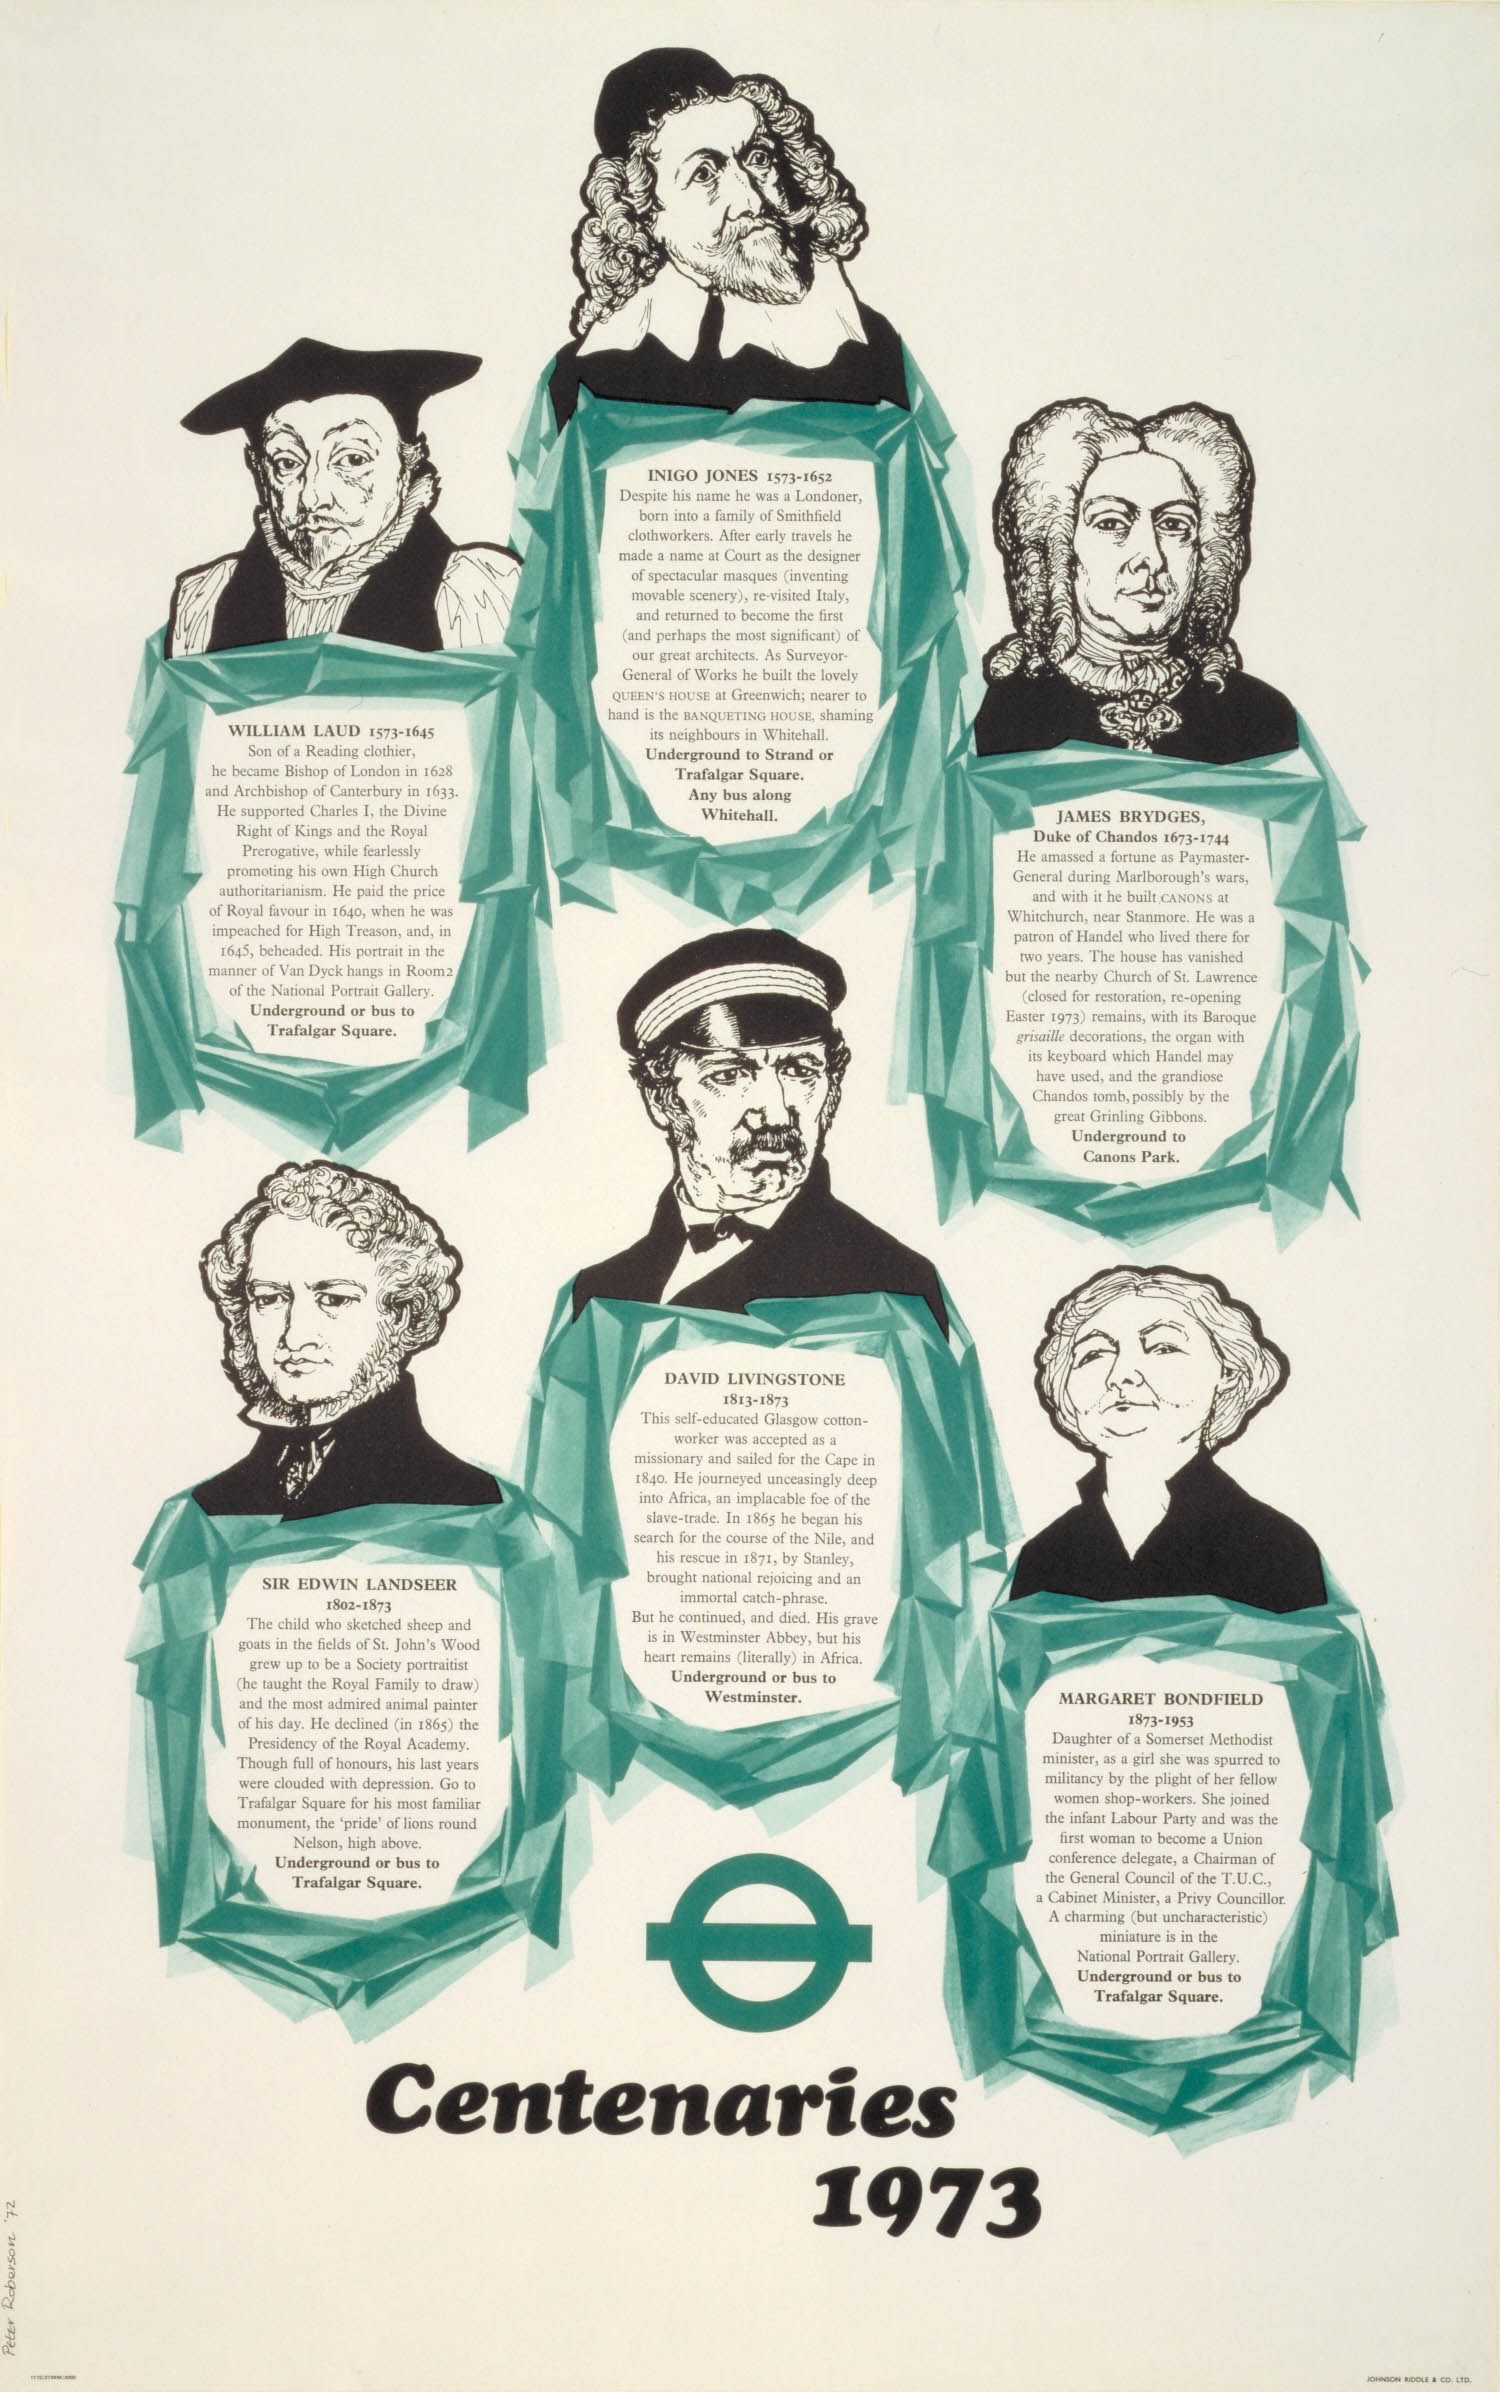 INIGO JONES 1573-1652
Despite his name he was a Londoner,
born into a family of Smithfield
clothworkers. After early travels he
made a name at Court as the designer
of spectacular masques (inventing
movable scenery), re-visited Italy,
and returned to become the first
(and perhaps the most significant) of
our great architects. As Surveyor-
General of Works he built the lovely
QUEEN'S HOUSE at Greenwich; nearer to
hand is the BANQUETING HOUSE, shaming
its neighbours in Whitehall.
Underground to Strand or
Trafalgar Square.
Any bus along
Whitehall.
WILLIAM LAUD 1573-1645
Son of a Reading clothier,
he became Bishop of London in 1628
and Archbishop of Canterbury in 1633.
He supported Charles I, the Divine
Right of Kings and the Royal
Prerogative, while fearlessly
promoting his own High Church
authoritarianism. He paid the price
of Royal favour in 1640, when he was
impeached for High Treason, and, in
1645, beheaded. His portrait in the
manner of Van Dyck hangs in Room 2
of the National Portrait Gallery.
Underground or bus to
Trafalgar Square.
JAMES BRYDGES,
Duke of Chandos 1673-1744
He amassed a fortune as Paymaster-
General during Marlborough's wars,
and with it he built CANONS at
Whitchurch, near Stanmore. He was a
patron of Handel who lived there for
two years. The house has vanished
but the nearby Church of St. Lawrence
(closed for restoration, re-opening
Easter 1973) remains, with its Baroque
grisaille decorations, the organ with
its keyboard which Handel may
have used, and the grandiose
Chandos tomb, possibly by the
great Grinling Gibbons.
Underground to
Canons Park.
DAVID LIVINGSTONE
1813-1873
This self-educated Glasgow cotton-
worker was accepted as a
missionary and sailed for the Cape in
1840. He journeyed unceasingly deep
into Africa, an implacable foe of the
slave-trade. In 1865 he began his
search for the course of the Nile, and
his rescue in 1871, by Stanley,
brought national rejoicing and an
immortal catch-phrase.
But he continued, and died. His grave
is in Westminster Abbey, but his
heart remains (literally) in Africa.
Underground or bus to
Westminster.
SIR EDWIN LANDSEER
1802-1873
The child who sketched sheep and
goats in the fields of St. John's Wood
grew up to be a Society portraitist
(he taught the Royal Family to draw)
and the most admired animal painter
of his day. He declined (in 1865) the
Presidency of the Royal Academy.
Though full of honours, his last years
were clouded with depression. Go to
Trafalgar Square for his most familiar
monument, the 'pride' of lions round
Nelson, high above.
Underground or bus to
Trafalgar Square.
MARGARET BONDFIELD
1873-1953
Daughter of a Somerset Methodist
minister, as a girl she was spurred to
militancy by the plight of her fellow
women shop-workers. She joined
the infant Labour Party and was the
first woman to become a Union
conference delegate, a Chairman of
the General Council of the T.U.C.,
a Cabinet Minister, a Privy Councillor.
A charming (but uncharacteristic)
miniature is in the
National Portrait Gallery.
Underground or bus to
Trafalgar Square.
Centenaries
1973
Peter Roberson '72
JOHNSON RIDDLE & CO. LTD.